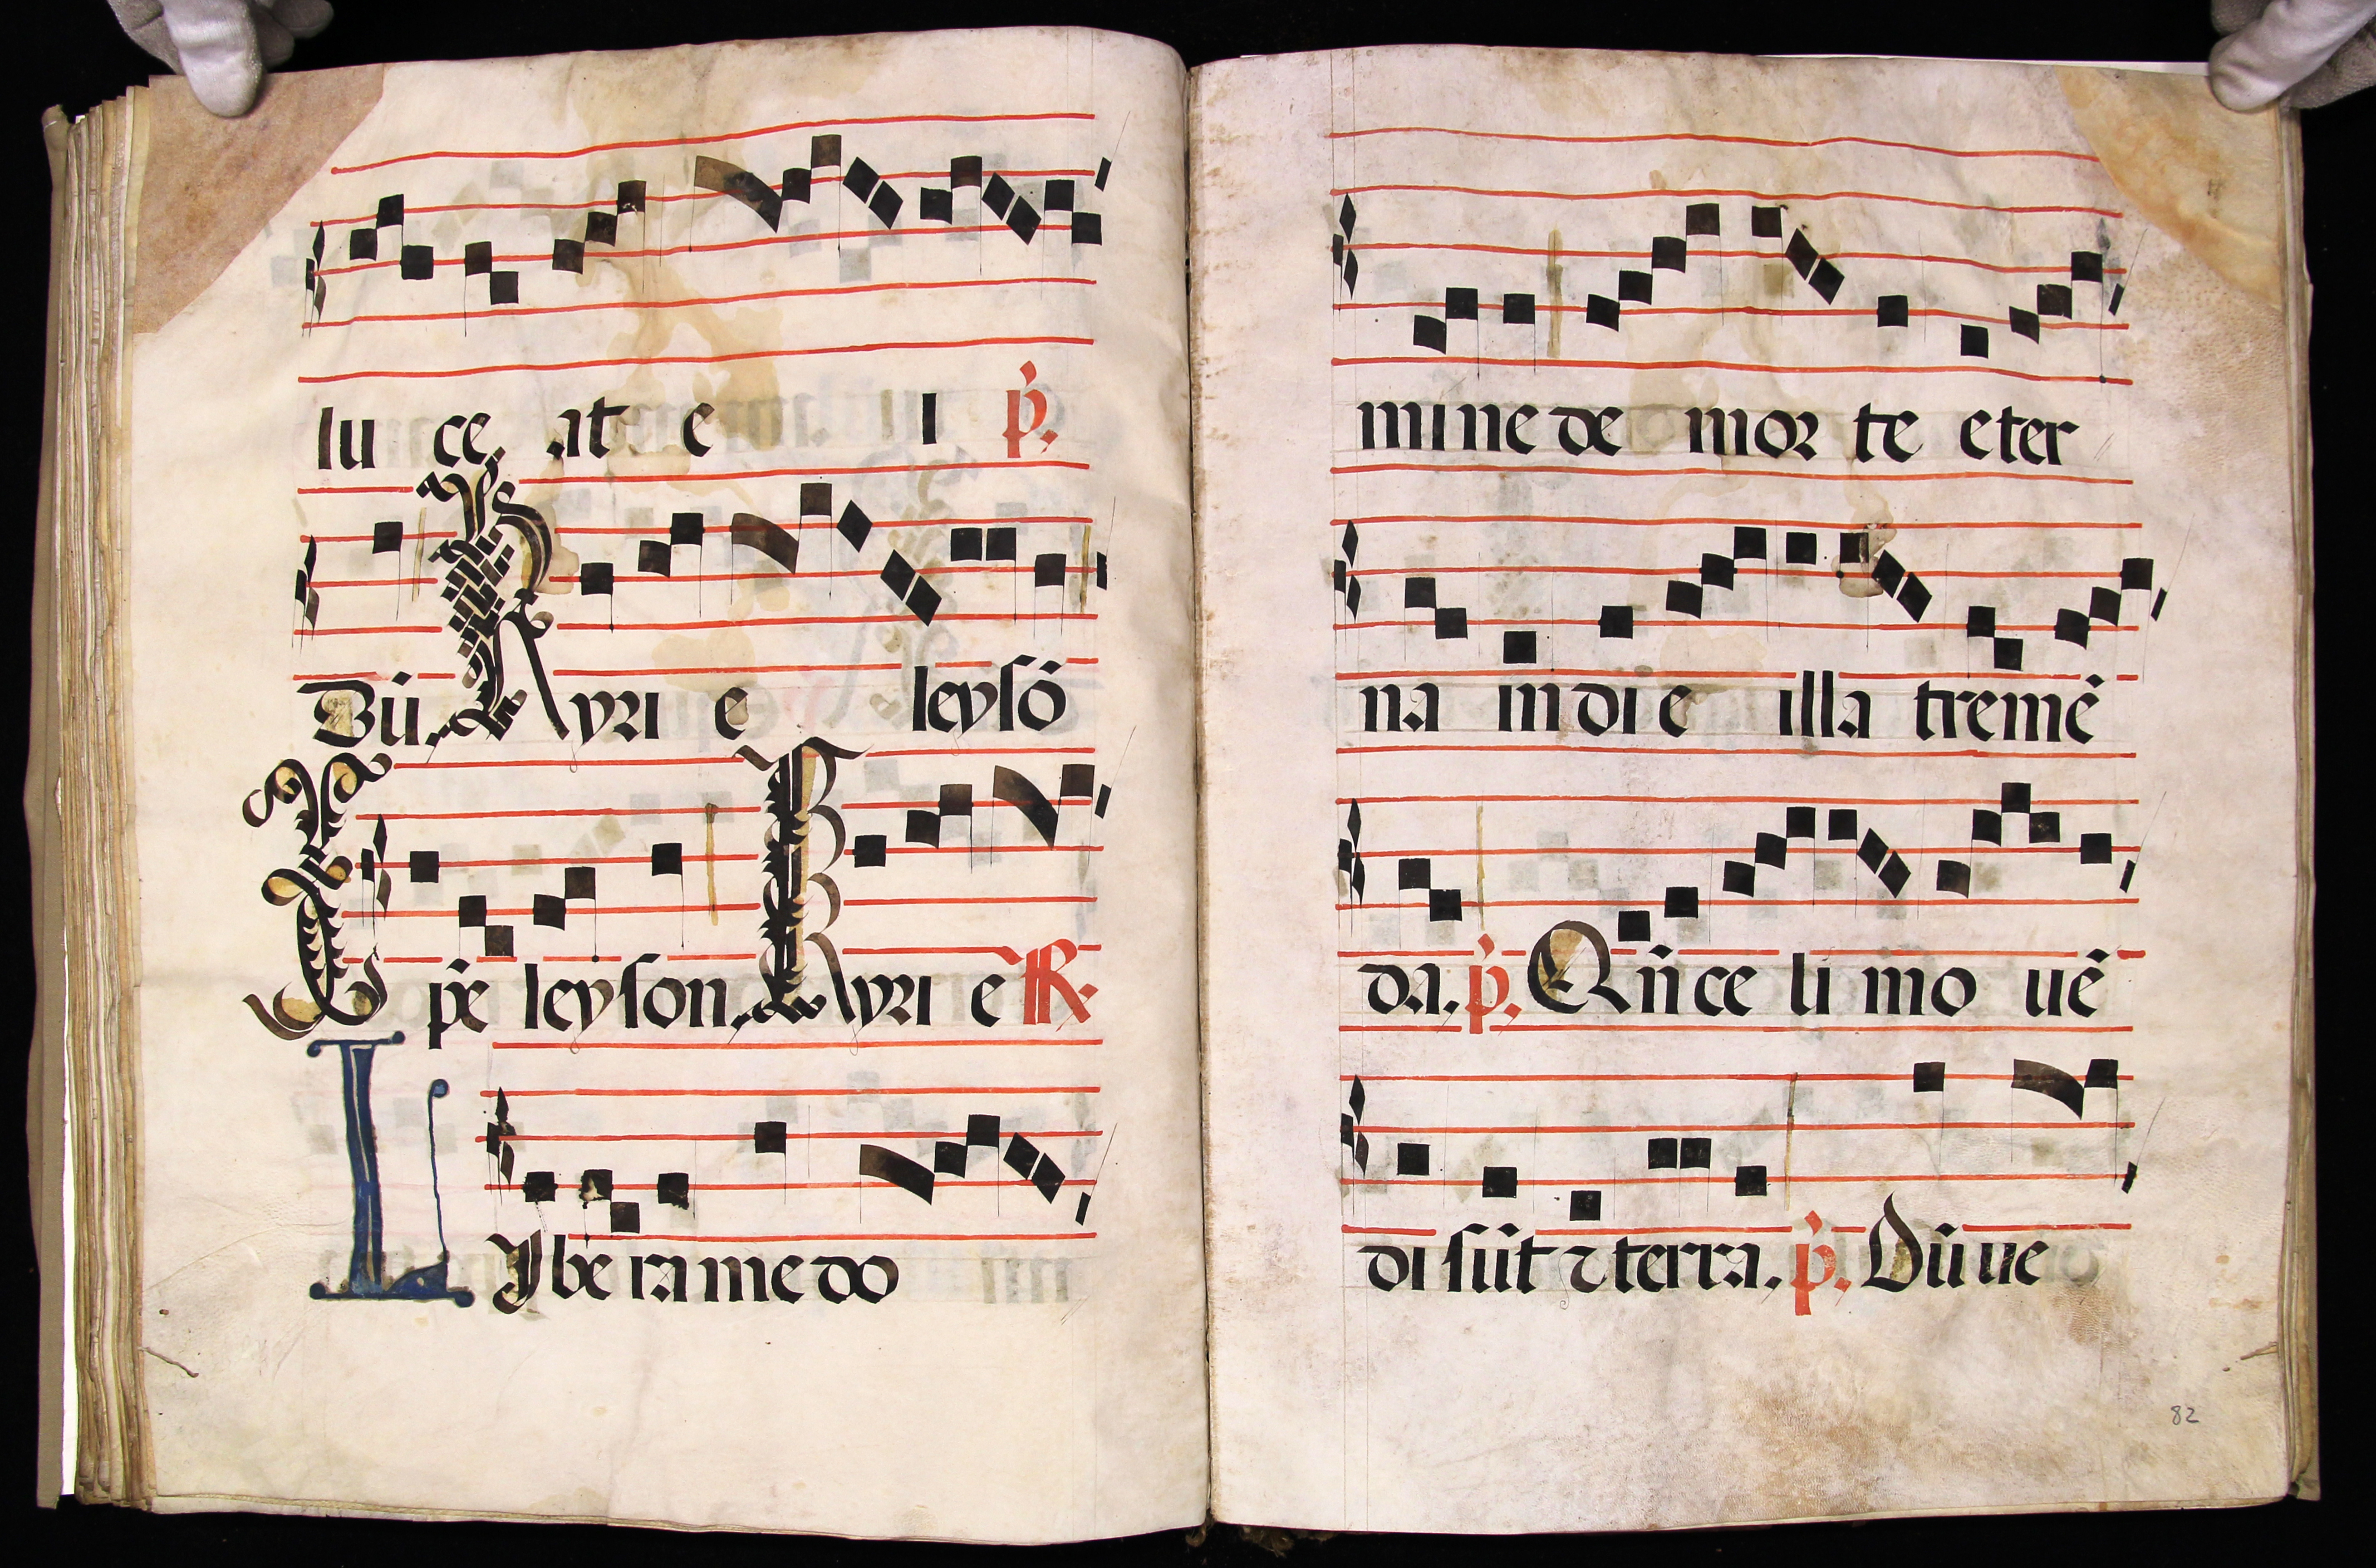 lu ce at e i p̉.
Dū. Kyri e leysō
Xp̄e leyson. Kyri e ℟.
LJbera me do
mine de mor te eter
na in di e illa tremē
da. p̉. Qn̄ ce li mo uē
di sūt ⁊ terra. p̉. Dū ue
82